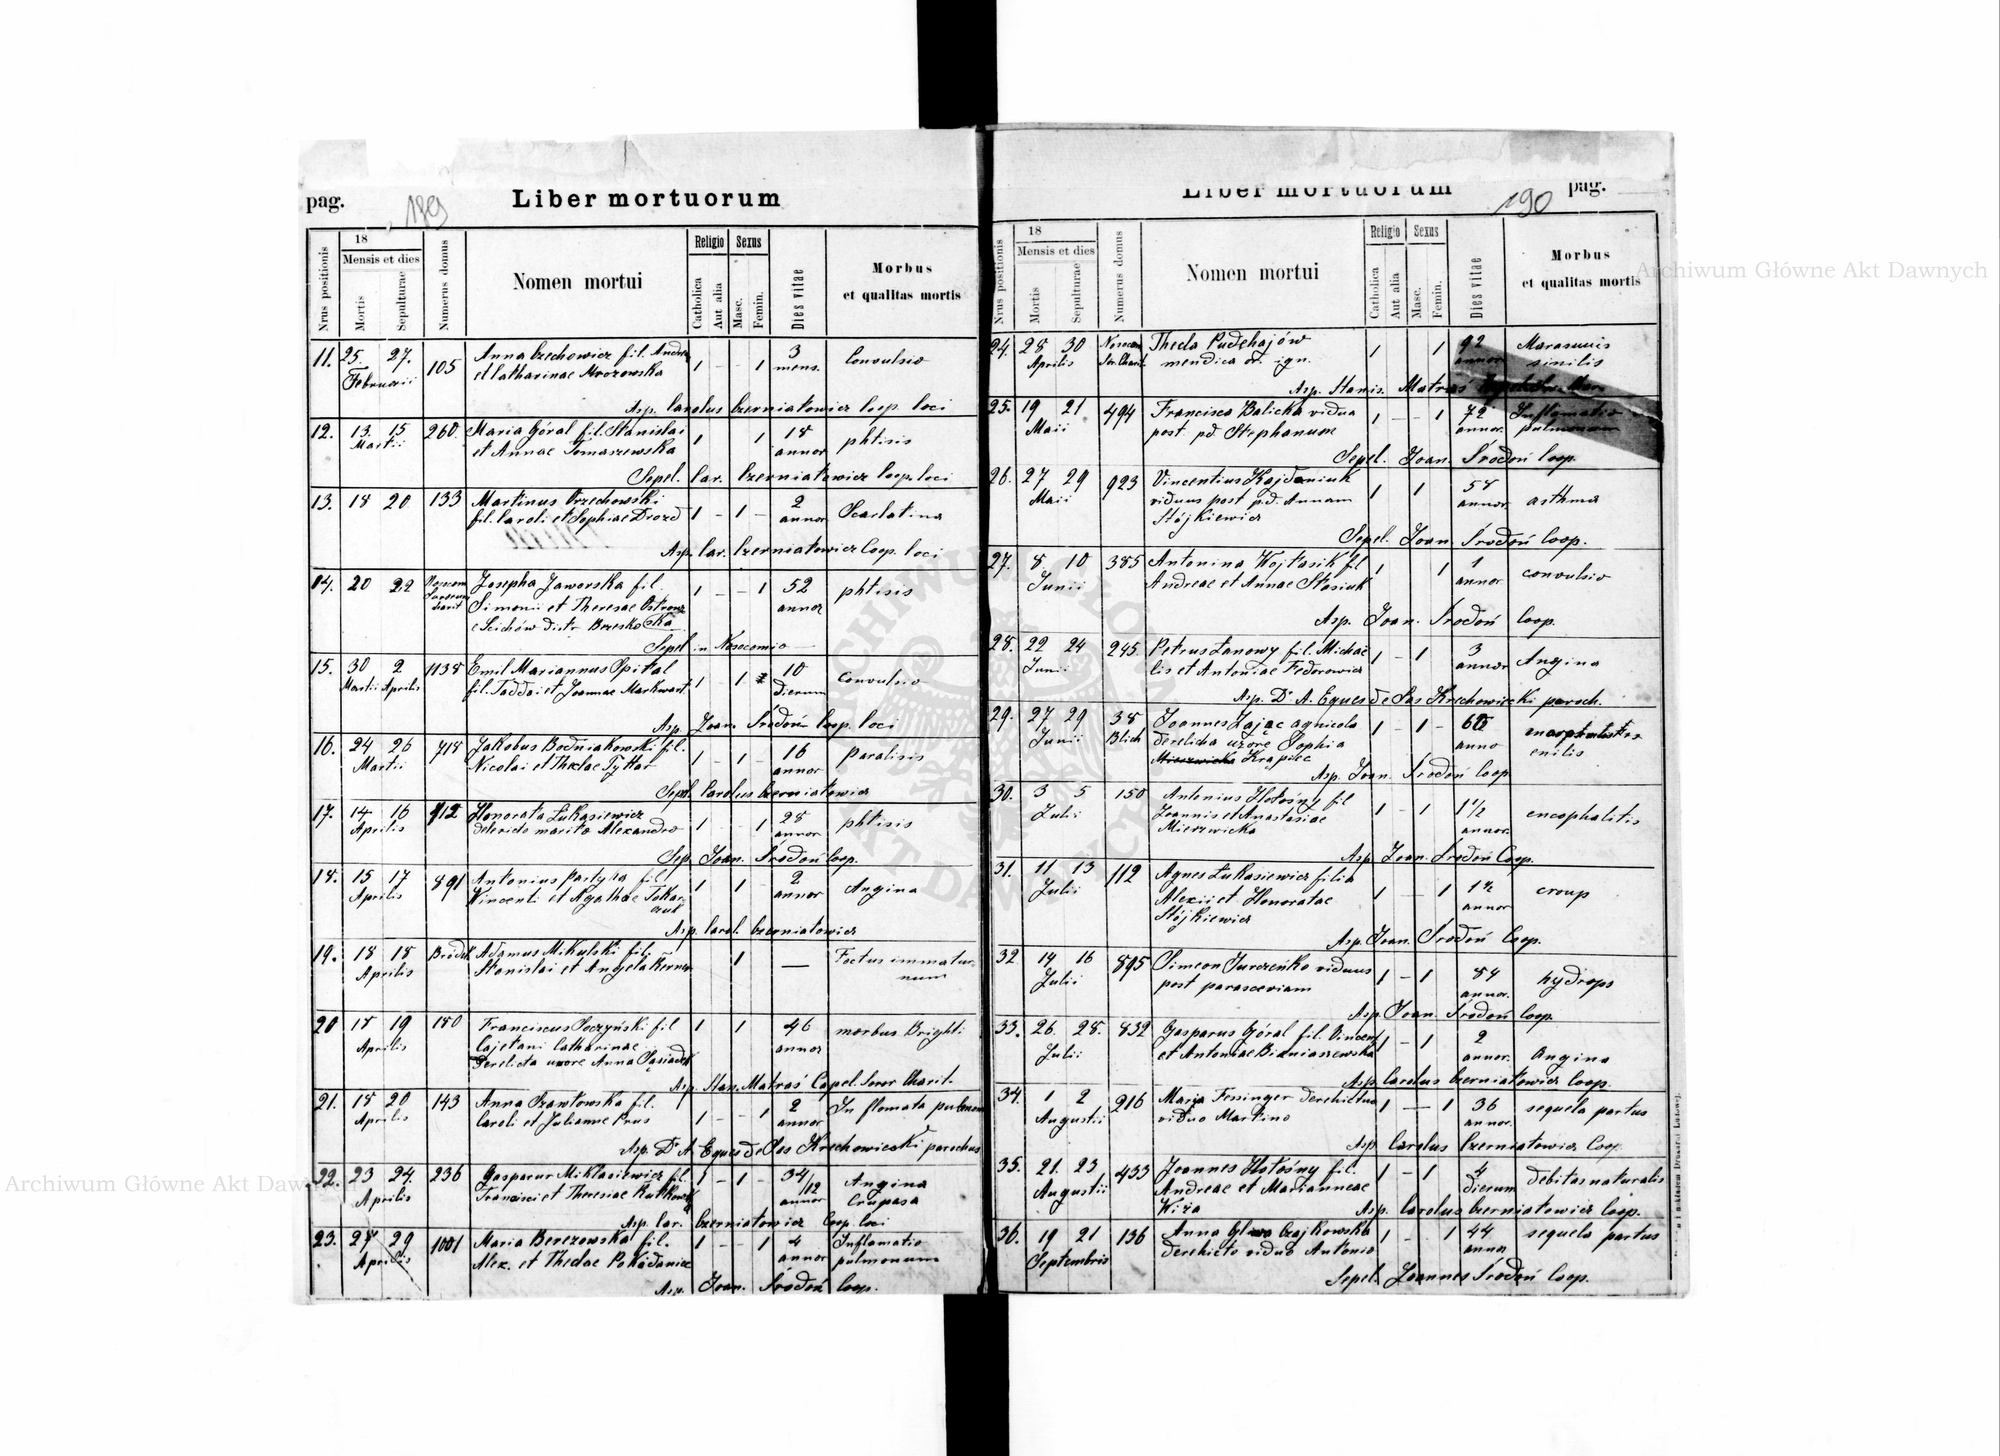 pag. 189 Liber mortuorum
Nrus positionis
18
Mensis et dies
Mortis
Sepulturae
Numerus domus
Nomen mortui
Religio
Catholica
Aut alia
Sexus
Masc.
Femin.
Dies vitae
Morbus
et qualitas mortis
11. 25. 27. 105 Anna Czechowicz fil. Andreae 1 - - 1 3 Convulsio
Februarii et Catharinae Mrozowska mens.
Asp. Carolus Czerniatowicz Coop. loci
12. 13. 15 260. Maria Góral fil. Stanislai 1 1 18 phtisis
Martii et Annae Tomaszewska annor
Sepel. Car. Czerniatowicz Coop. loci
13. 18 20 133 Martinus Orzechowski 1 - 1 - 2 Scarlatina
fil. Caroli et Sophiae Drozd annor
Asp. Car. Czerniatowicz Coop. loci
14. 20 22 Josepha Jaworska fil. 1 - - 1 52 phtisis
Simonii et Theresae annor
distr. Beresko
Sepel in Nosocomio
15. 30 2 1138 Emil Mariannus Spital 1 - 1 10 convulsio
Martii Aprilis fil. Taddai et Joannae Markwart dierum
Asp. Joan. Środoń Coop. loci
16. 24 26 718 Jakobus Bodniakowski fil. 1 - 1 - 16 paralisis
Martii Nicolai et Theclae annor
Sepel. Carolus Czerniatowicz
17. 14 16 912 Honorata Łukasiewicz 1 - - 1 28 phtisis
Aprilis marito Alexandro annor
Sep. Joan. Środoń Coop.
18. 15 17 891 Antonius Partyka fil. 1 1 - 2 Angina
Aprilis Vincenti et Agathae annor
Asp. Carol. Czerniatowicz
19. 18 18 Adamus Mikulski fil. 1 — Foetus immatur
Aprilis Stanislai et Angela num
20 18 19 180 Franciscus fil 1 1 46 morbus Brighti
Aprilis Cajetani Catharinae annor
derelicta uxore Anna
Asp. Stan. Matraś Capel. Soror Charit.
21. 18 20 143 Anna fil. 1 - 1 2 Inflamata pulmon
Aprilis Caroli et Julianne Prus annor
Asp. Dr A Eques de Sas Krechowiecki parochus
22. 23 24. 236 Gasparus Miklasiewicz fil. 1 - 1 - 3 4/12 Angina
Aprilis Francisci et Theresiae annor Crupasa
Asp. Car. Czerniatowicz Coop. loci
23. 27 29 1001 Maria Berezowska fil. 1 - - 1 4 Inflamatio
Aprilis Alex. et Theclae annor pulmonum
Asp. Joan. Środoń Coop.
Liber mortuorum 190 pag.
Nrus positionis
18
Mensis et dies
Mortis
Sepulturae
Numerus domus
Nomen mortui
Religio
Catholica
Aut alia
Sexus
Masc.
Femin.
Dies vitae
Morbus
et qualitas mortis
24. 28 30 Thecla Pudehajów 1 1 92 Marasmus
Aprilis mendica or. ign. annor sinilis
Asp. Stanis. Matraś
25. 19 21 494 Francisca Balicka vidua 1 - - 1 72 Inflamatio
Maii post pd. Stephanum annor. pulmonum
Sepel. Joan. Środoń Coop.
26. 27 29 923 Vincentius Kajdaniuk 1 1 58 asthma
Maii viduus post pd. Annam annor.
Stójkiewicz
Sepel. Joan. Środoń Coop.
27. 8 10 385 Antonina Wojtasik fil 1 1 1 convulsio
Junii Andreae et Annae Stasiuk annor.
Asp. Joan. Środoń Coop.
28. 22 24 245. Petrus Łanowy fil. Michae 1 - 1 3 Angina
Junii lis et Antoniae Fedorowicz annor
Asp. Dr A. Eques de Sas Krechowiecki paroch.
29. 27 29 38 Joannes Zając agricola 1 - 1 -
Junii Blich derelicta uxore Sophia anno enilis
Krapiec
Asp. Joan. Środoń Coop
30. 3 5 150 Antonius Hołośny fil 1 - 1 1 1/2 encephalitis
Julii Joannis et Anastasiae annor.
Mierzwicka
Asp. Joan. Środoń Coop.
31. 11 13 112 Agnes Łukasiewicz filia 1 - 1 croup
Julii Alexii et Honoratae annor
Stójkiewicz
Asp. Joan. Środoń Coop.
32 14 16 895 Simeon Jurczeńko viduus 1 - 1 84 hydrops
Julii post parasceviam annor.
Asp. Joan. Środoń Coop.
33. 26. 28. 832 Gasparus Góral fil. Vincenti 1 - 1 2 angina
Julii et Antoniae Bieniaszewska annor.
Asp. Carolus Czerniatowicz Coop.
34. 1 2 216 Maria Fessinger derelictus 1 — 1 36 sequela partus
Augustii viduo Martino annor.
Asp. Carolus Czerniatowicz Coop
35. 21. 23 433 Joannes Hołośny fil. 1 - 1 4 debitas naturalis
Augustii Andreae et Marianneae dierum
Wiza Asp. Carolus Czerniatowicz Coop.
36. 19 21 136 Anna Czajkowska 1 - 1 44 sequela partus
Septembris derelicto viduo Antonio annor
Sepel. Joannes Środoń Coop.
Archiwum Główne Akt Dawnych
Archiwum Główne Akt Dawnych
ARCHIWUM GŁÓWNE AKT DAWNYCH